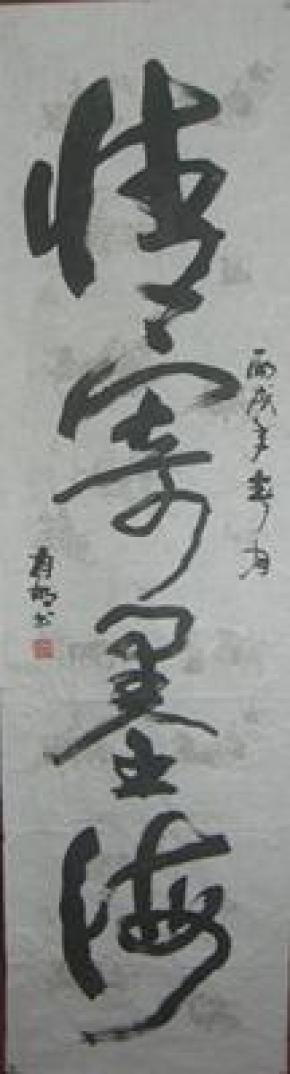 情寄墨海
丙戌年春月
书